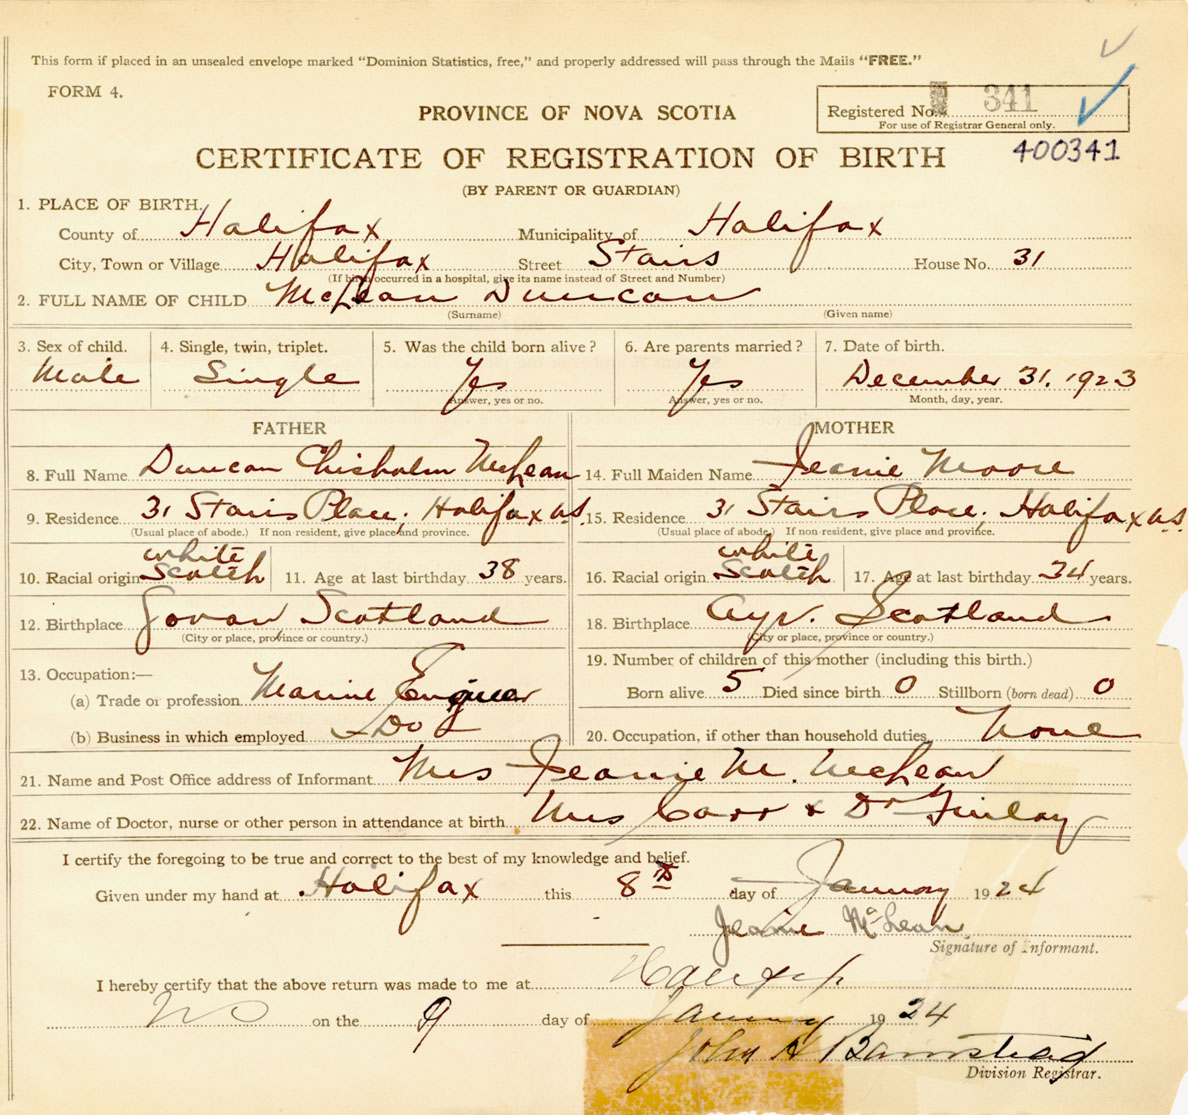 This form if placed in an unsealed envelope marked "Dominion Statistics, free," and properly addressed will pass through the Mails "FREE."
FORM 4.
PROVINCE OF NOVA SCOTIA
Registered No. 341
For use of Registrar General only.
CERTIFICATE OF REGISTRATION OF BIRTH 400341
(BY PARENT OR GUARDIAN)
1. PLACE OF BIRTH.
County of Halifax Municipality of Halifax
City, Town or Village Halifax Street Stairs House No. 31
(If birth occurred in a hospital, give its name instead of Street and Number)
2. FULL NAME OF CHILD McLean Duncan
(Surname) (Given name)
3. Sex of child. 4. Single, twin, triplet. 5. Was the child born alive? 6. Are parents married? 7. Date of birth.
Male Single Yes Yes December 31, 1923
Answer, yes or no. Answer, yes or no. Month, day, year.
FATHER MOTHER
8. Full Name Duncan Chisholm McLean 14. Full Maiden Name Jeanie Moore
9. Residence 31 Stairs Place, Halifax N.S. 15. Residence 31 Stairs Place, Halifax N.S.
(Usual place of abode.) If non resident, give place and province. (Usual place of abode.) If non-resident, give place and province.
white white
10. Racial origin Scotch 11. Age at last birthday 38 years. 16. Racial origin Scotch 17. Age at last birthday 34 years.
12. Birthplace Govan, Scotland 18. Birthplace Ayr. Scotland
(City or place, province or country.) (City or place, province or country.)
13. Occupation:— 19. Number of children of this mother (including this birth.)
(a) Trade or profession Marine Engineer Born alive 5 Died since birth 0 Stillborn (born dead) 0
(b) Business in which employed Do 20. Occupation, if other than household duties None
21. Name and Post Office address of Informant Mrs Jeanie M. McLean
22. Name of Doctor, nurse or other person in attendance at birth Mrs Carr & Dr Finlay
I certify the foregoing to be true and correct to the best of my knowledge and belief.
Given under my hand at Halifax this 8th day of January 1924
Jeanie McLean
Signature of Informant.
I hereby certify that the above return was made to me at Halifax
NS on the 9 day of January 1924
John A Barnstead
Division Registrar.